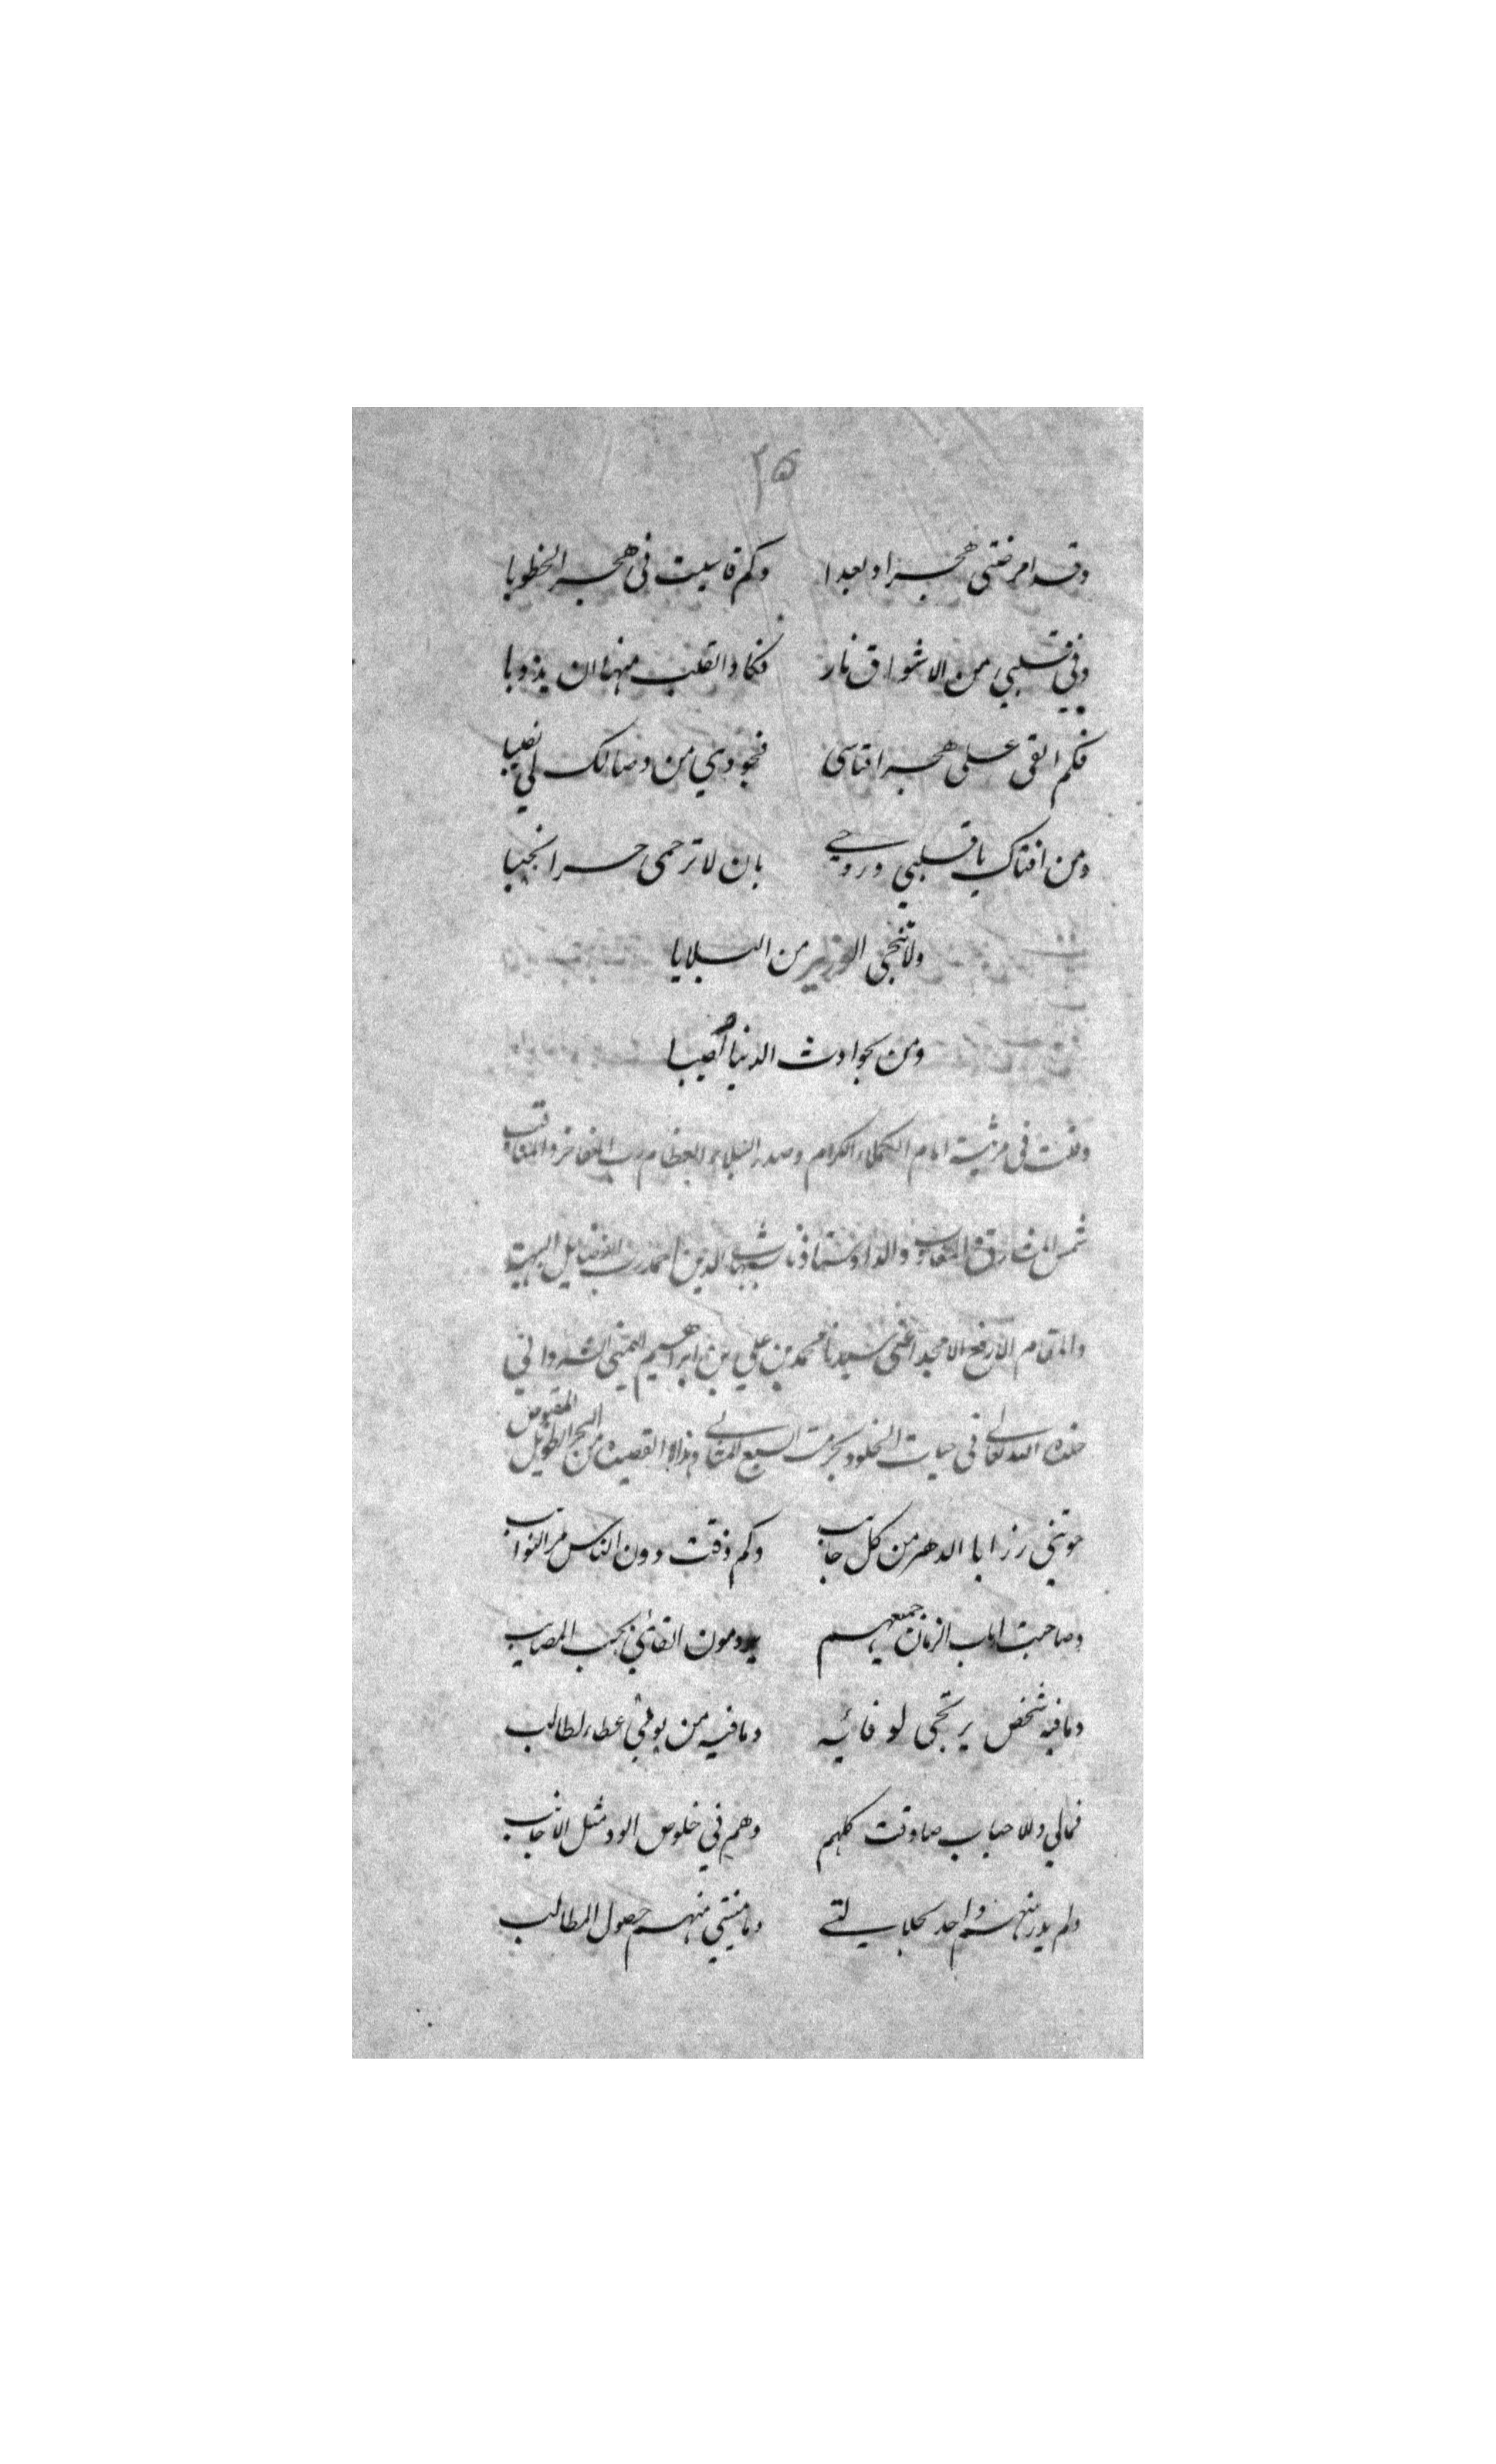 ٢٥
وقد امرضتى هجرا وبعدا وكم قاسيت في هجر الخطوبا
وفي قلبي من الاشواق نار فكاد القلب منها ان يذوبا
فكم القى على هجر اقاسى فجودي من وصالك لي نصيبا
ومن افتاك يا قلبي وروحي بان لا ترحمى حرا نجيبا
ولا تنجى الوزير من البلايا
ومن بحوادث الدنيا أصيبا
وقلت في مرثية امام الكملاء الكرام وصدر النبلاء العظام رب المفاخر والمناقب
شمس المشارق والمغارب والد استاذنا شهاب الدين احمد رب الفضايل البهية
والمقام الارفع الامجد اعنى سيدنا محمد بن علي بن ابراهيم اليمني الشرواني
خلده الله تعالى في جنات الخلود بحرمت السبع المثاني وهذه القصيدة من البحر الطويل المقبوض
حوتني رزايا الدهر من كل جانب وكم ذقت دون الناس مر النوائب
وصاحبت ارباب الزمان جميعهم يرومون القائي بجب المصايب
وما فيه شخص يرتجى لوفائه وما فيه من يوفي عطاء لطالب
فمالي وللاحباب صادقت كلهم وهم في خلوص الود مثل الاجانب
ولم يدر منهم واحد بحالتي وما منيتي منهم حصول المطالب